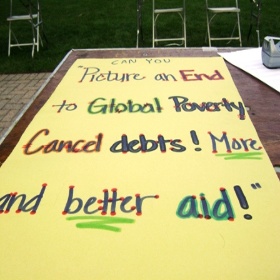 CAN YOU
"Picture an End
to Global Poverty.
Cancel debts! More
and better aid!"